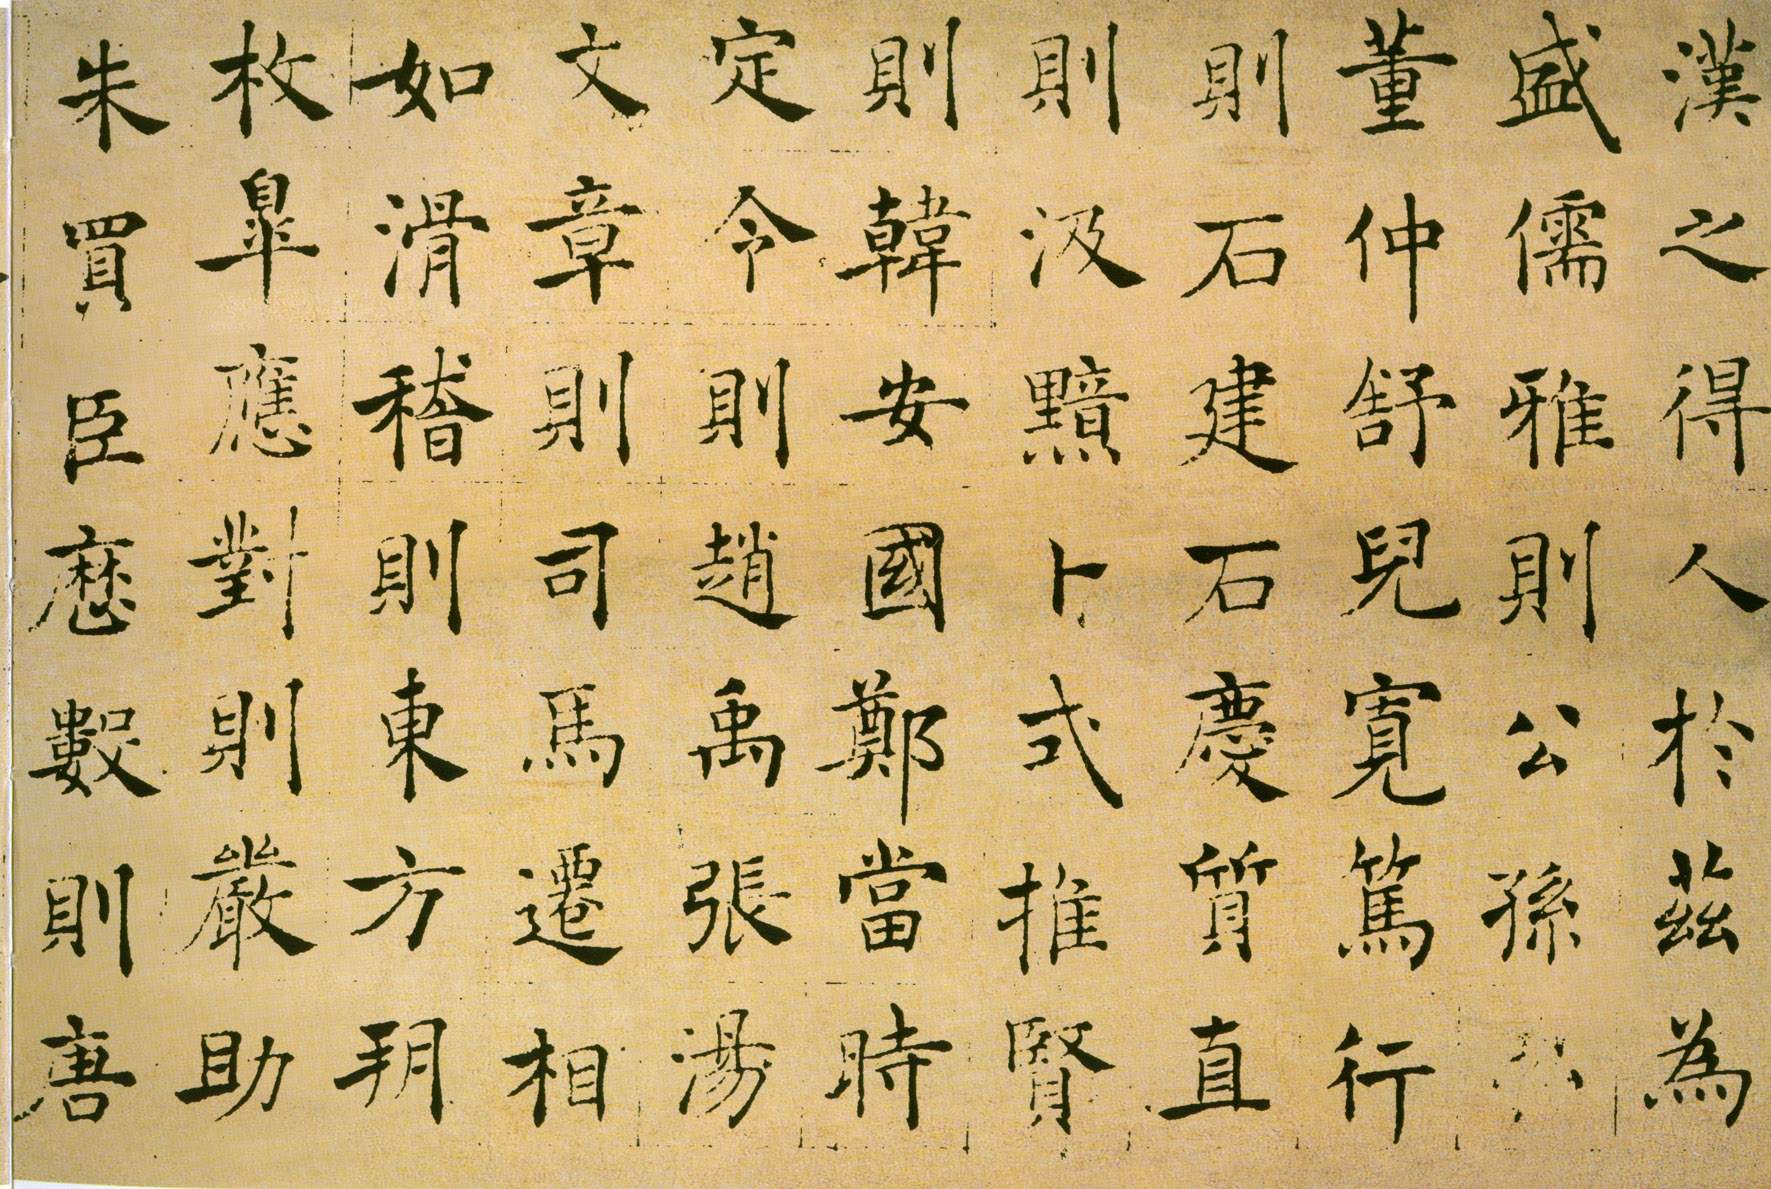 漢之得人於茲為
盛儒雅則公孫
董仲舒兒寬篤行
則石建石慶質直
則汲黯卜式推賢
則韓安國鄭當時
定令則趙禹張湯
文章則司馬遷相
如滑稽則東方朔
枚皋應對則嚴助
朱買臣歷數則唐